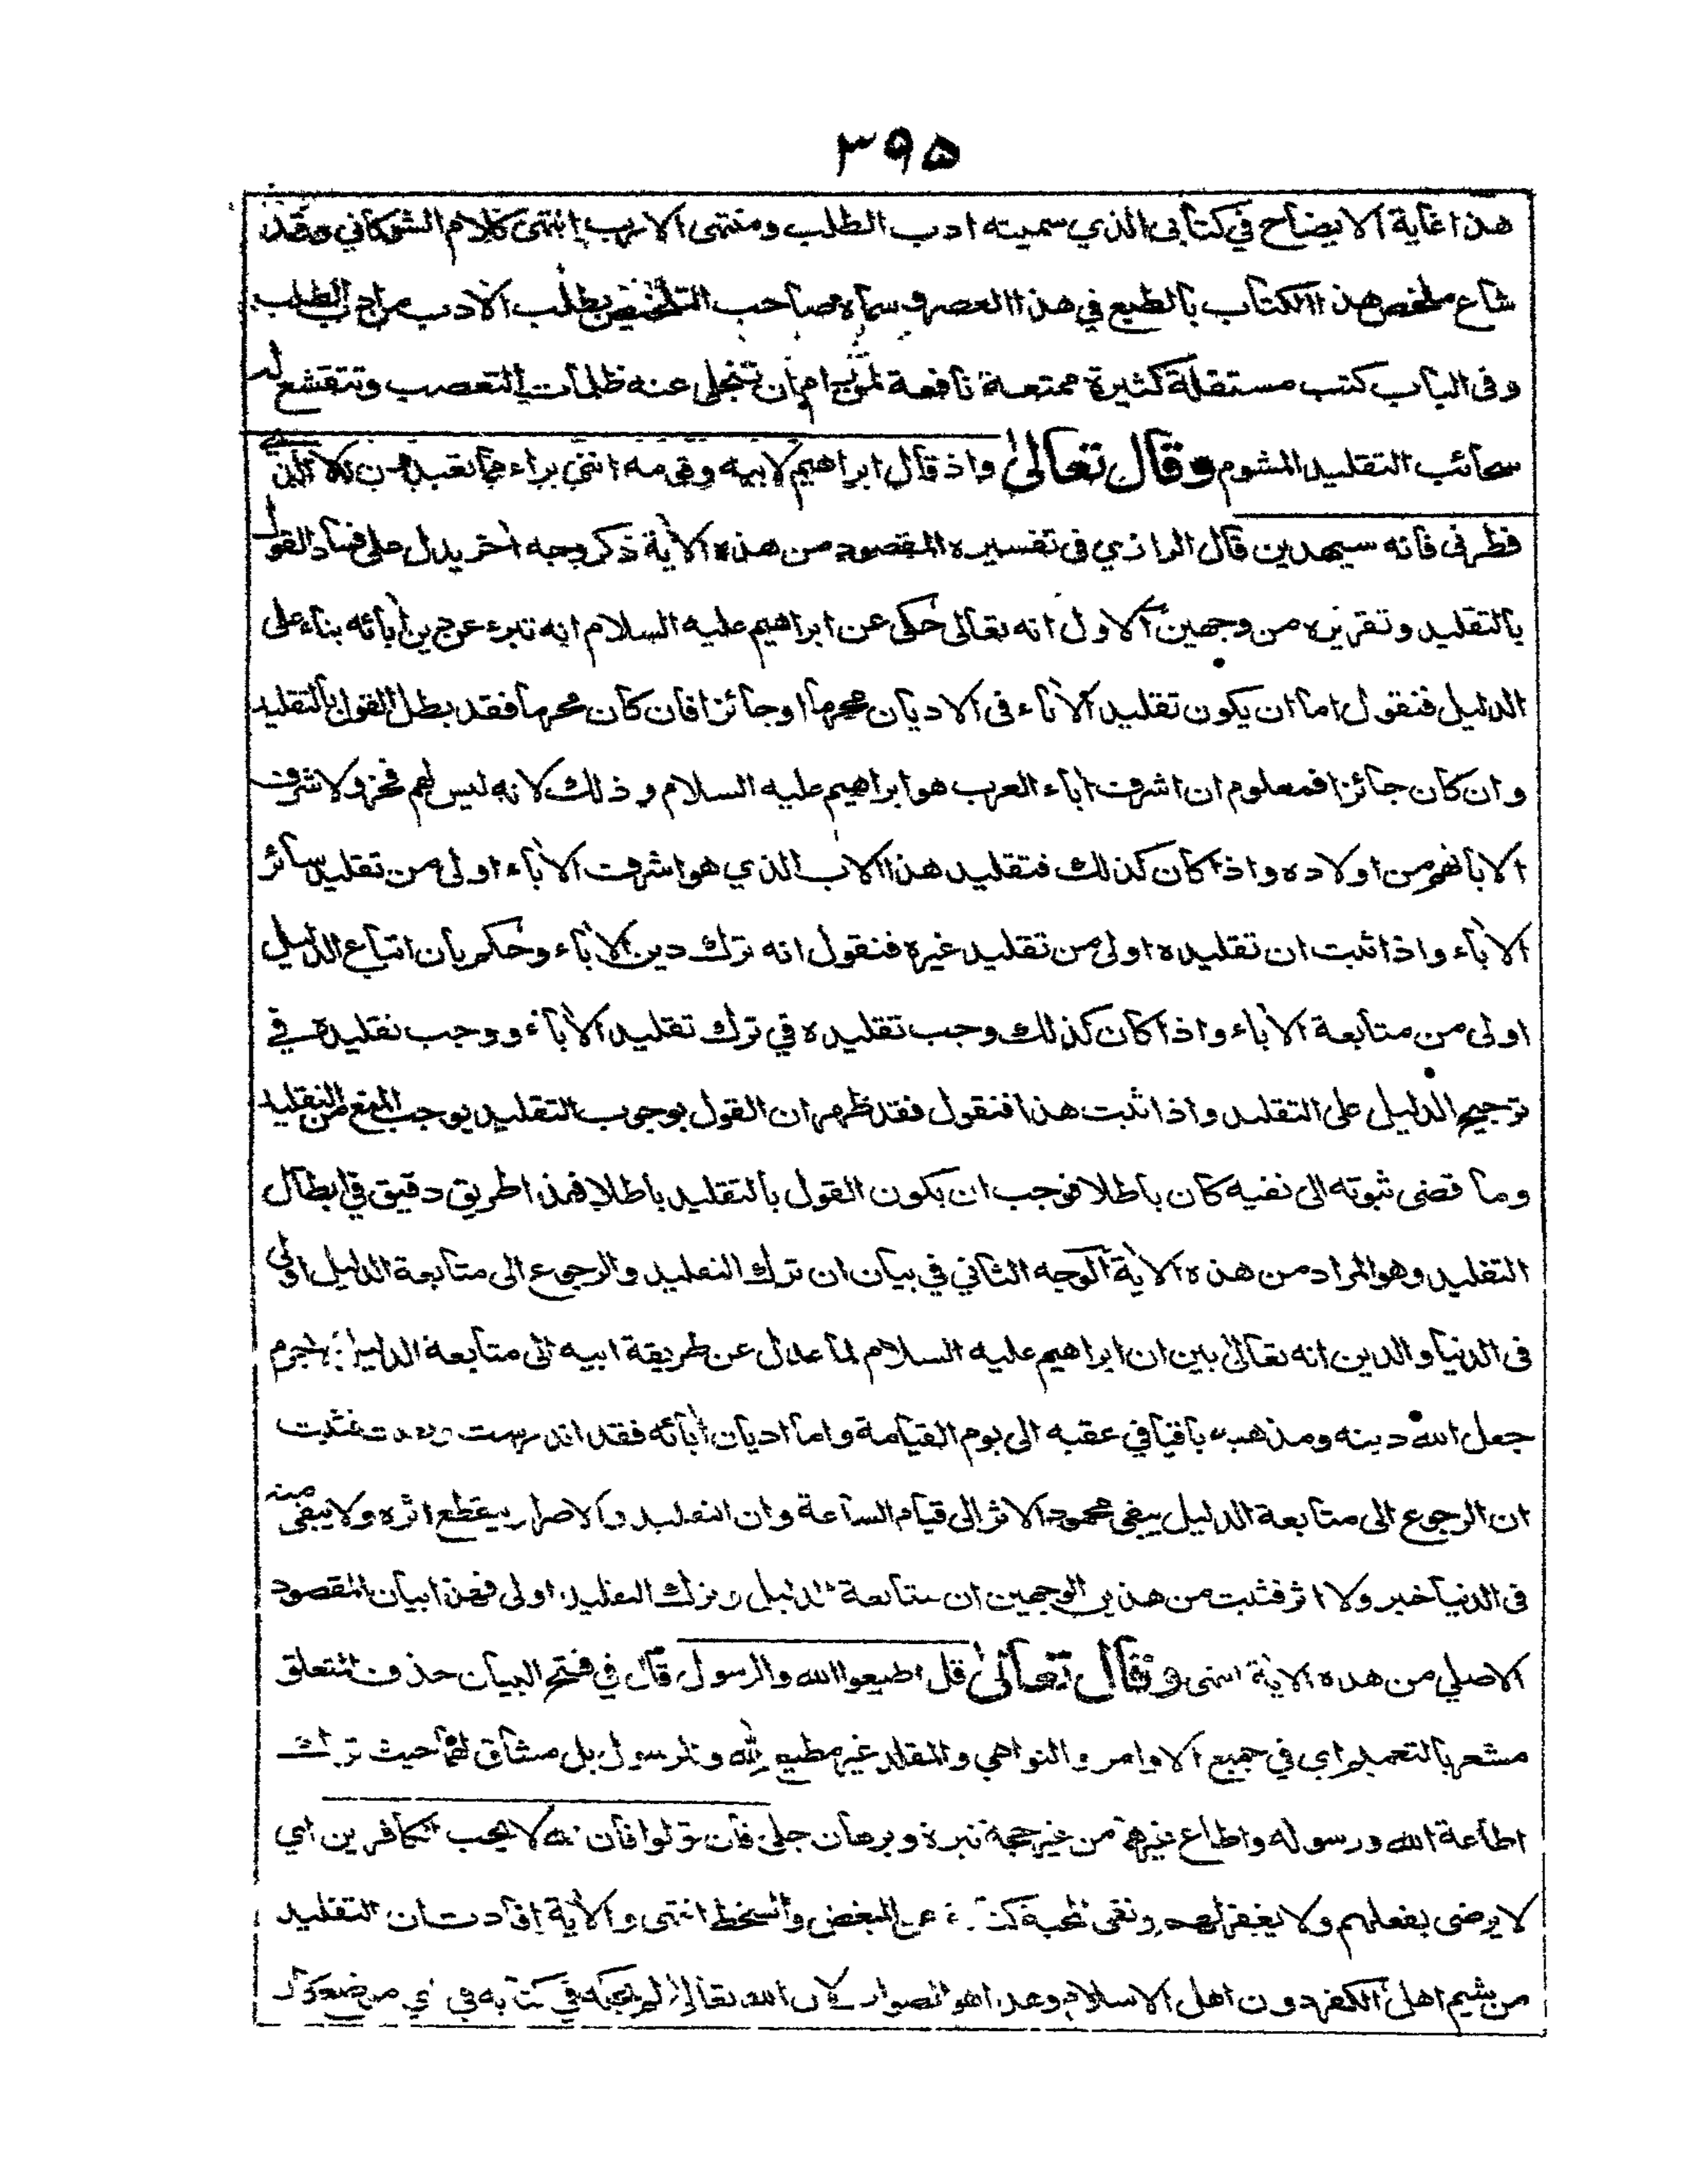 ٣٩٥
هذا غاية الايضاح في كتابي الذي سميته ادب الطلب ومنتهى الارب إنتهى كلام الشوكاني وقد
شاع ملخص هذا الكتاب بالطبع في هذا العصر وسماه صاحب التلخيص بطلب الادب من ادب الطلب
وفى الباب كتب مستقلة كثيرة ممتعة نافعة لمن رام ان تنجلي عنه ظلمات التعصب وتتقشع له
سحائب التقليد المشوم وقال تعالىٰ واذ قال ابراهيم لابيه وقومه انني براء مما تعبدون الا الذي
فطرنى فانه سيهدين قال الرازي فى تفسيره المقصود من هذه الأية ذكر وجه أخر يدل على فساد القول
بالتقليد وتقريره من وجهين الاول انه تعالى حكى عن ابراهيم عليه السلام انه تبرء عن دين أبائه بناء على
الدليل فنقول اما ان يكون تقليد الأباء فى الاديان محرما او جائزا فان كان محرما فقد بطل القول بالتقليد
وان كان جائزا فمعلوم ان اشرف اباء العرب هو ابراهيم عليه السلام وذلك لانه ليس لهم فخر ولا شرف
الا بانهم من اولاده واذا كان كذلك فتقليد هذا الاب الذي هو اشرف الأباء اولى من تقليد سائر
الأباء واذا ثبت ان تقليده اولى من تقليد غيره فنقول انه ترك دين الأباء وحكم بان اتباع الدليل
اولى من متابعة الأباء واذا كان كذلك وجب تقليده في ترك تقليد الأباء ووجب تقليده في
ترجيح الدليل على التقليد واذا ثبت هذا فنقول فقد ظهر ان القول بوجوب التقليد يوجب المنع من التقليد
وما قضى ثبوته الى نفيه كان باطلا فوجب ان يكون القول بالتقليد باطلا فهذا طريق دقيق في ابطال
التقليد وهو المراد من هذه الأية الوجه الثاني في بيان ان ترك التقليد والرجوع الى متابعة الدليل اولى
فى الدنيا والدين انه تعالىٰ بين ان ابراهيم عليه السلام لما عدل عن طريقة ابيه الى متابعة الدليل لاجرم
جعل الله دينه ومذهبه باقيا في عقبه الى يوم القيامة واما اديان أبائه فقد اندرست فثبت
ان الرجوع الى متابعة الدليل يبقى محمود الاثر الى قيام الساعة وان التقليد والاصرار ينقطع اثره ولا يبقى منه
فى الدنيا خبر ولا اثر فثبت من هذين الوجهين ان متابعة الدليل وترك التقليد اولى فهذا بيان المقصود
الاصلي من هذه الأية انتهى وقال تعالىٰ قل اطيعوا الله والرسول قال في فتح البيان حذف المتعلق
مشعر بالتعميم اي في جميع الاوامر والنواهي والمقلد غير مطيع لله وللرسول بل مشاق لهما حيث ترك
اطاعة الله ورسوله واطاع غيرهما من غير حجة نيرة وبرهان جلي فان تولوا فان الله لا يحب الكافرين اي
لا يرضى بفعلهم ولا يغفر لهم ونفى المحبة كناية عن البغض والسخط انتهى والأية افادت ان التقليد
من شيم اهل الكفر دون اهل الاسلام وهذا هو الصواب لان الله تعالىٰ لم يحكه في كتابه في اي موضع كان